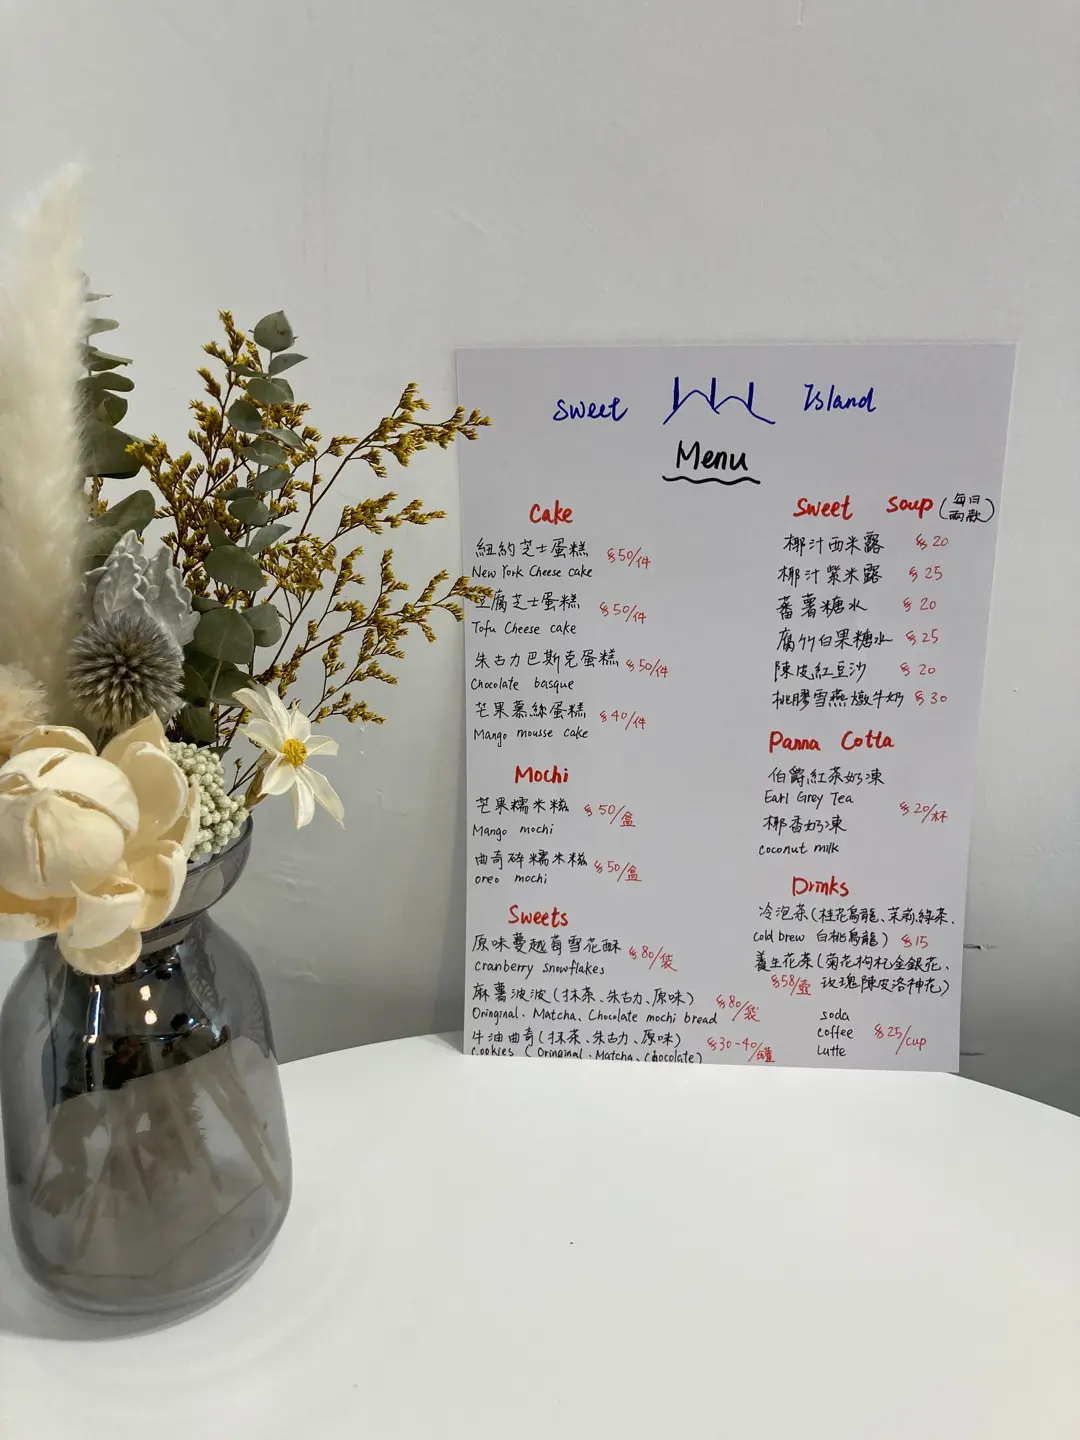 Sweet Island
Menu
Cake
紐約芝士蛋糕 $50/件
New York Cheese cake
豆腐芝士蛋糕 $50/件
Tofu Cheese cake
朱古力巴斯克蛋糕 $50/件
Chocolate basque
芒果慕絲蛋糕 $40/件
Mango mousse cake
Mochi
芒果糯米糍 $50/盒
Mango mochi
曲奇碎糯米糍 $50/盒
oreo mochi
Sweets
原味蔓越莓雪花酥 $80/袋
cranberry snowflakes
麻薯波波(抹茶、朱古力、原味) $80/袋
Oringinal、Matcha、Chocolate mochi bread
牛油曲奇(抹茶、朱古力、原味) $30-40/罐
Cookies (Oringinal、Matcha、Chocolate)
Sweet Soup (每日兩款)
椰汁西米露 $20
椰汁紫米露 $25
蕃薯糖水 $20
腐竹白果糖水 $25
陳皮紅豆沙 $20
桃膠雪燕燉牛奶 $30
Panna Cotta
伯爵紅茶奶凍
Earl Grey Tea
$20/杯
椰香奶凍
coconut milk
Drinks
冷泡茶(桂花烏龍、茉莉綠茶、
cold brew 白桃烏龍) $15
養生花茶(菊花枸杞金銀花、
$58/壺 玫瑰陳皮洛神花)
soda
coffee $25/cup
Latte